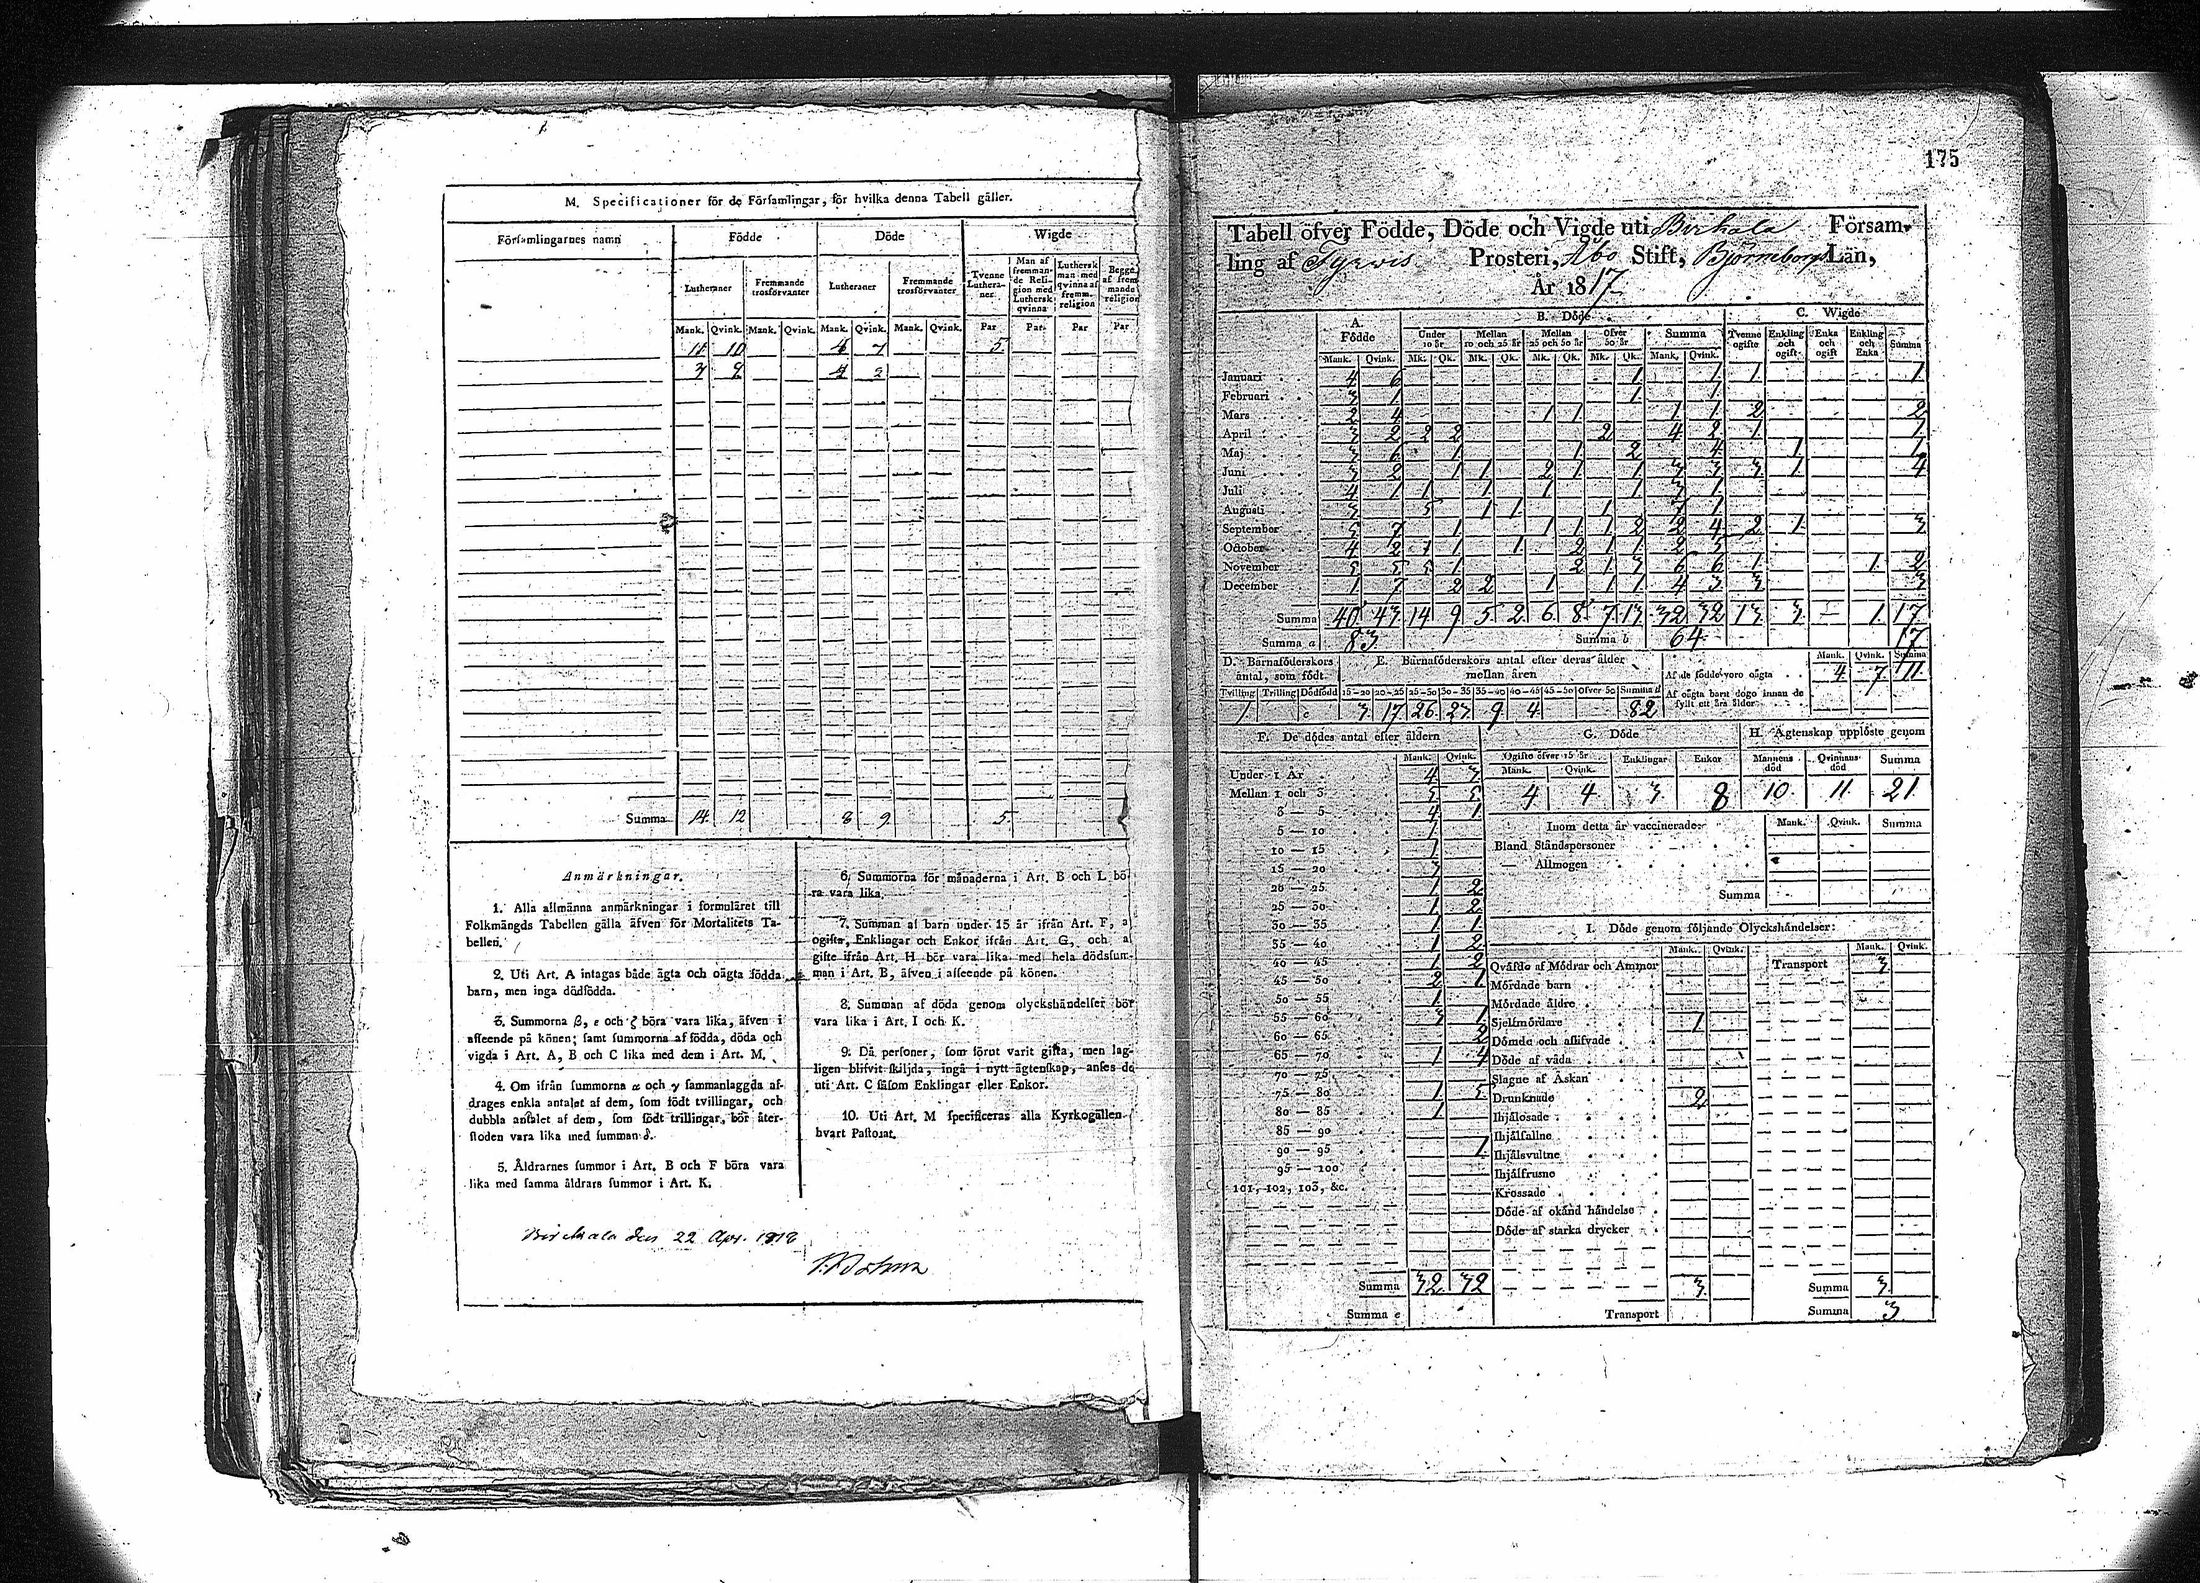 M. Specificationer för de Församlingar, för hvilka denna Tabell gäller.
Församlingarnes namn Födde Döde Wigde
Lutheraner Fremmande trosförvanter Lutheraner Fremmande trosförvanter Tvenne Lutheraner. Man af fremmande Religion med Luthersk qvinna Luthersk man med qvinna af fremm. religion Begge af fremmande religion
Mank. Qvink. Mank. Qvink. Mank. Qvink. Mank. Qvink. Par Par Par Par
11 10 4 7 5
3 2 4 2
Summa 14 12 8 9 5
Anmärkningar.
1. Alla allmänna anmärkningar i formuläret till
Folkmängds Tabellen gälla äfven för Mortalitets Ta-
bellen.
2. Uti Art. A intagas både ägta och oägta födda
barn, men inga dödfödda.
3. Summorna β, ε och ζ böra vara lika, äfven i
afseende på könen; samt summorna af födda, döda och
vigda i Art. A, B och C lika med dem i Art. M.
4. Om ifrån summorna α och γ sammanlaggda af-
drages enkla antalet af dem, som födt tvillingar, och
dubbla antalet af dem, som födt trillingar, bör åter-
stoden vara lika med summan δ.
5. Åldrarnes summor i Art. B och F böra vara
lika med samma åldrars summor i Art. K.
6. Summorna för månaderna i Art. B och L bö-
ra vara lika.
7. Summan af barn under 15 år ifrån Art. F, a
ogifte, Enklingar och Enkor ifrån Art. G, och a
gifte ifrån Art. H bör vara lika med hela dödssum-
man i Art. B, äfven i afseende på könen.
8. Summan af döda genom olyckshändelser bör
vara lika i Art. I och K.
9. Då personer, som förut varit gifta, men lag-
ligen blifvit skiljda, ingå i nytt ägtenskap, anses de
uti Art. C såsom Enklingar eller Enkor.
10. Uti Art. M specificeras alla Kyrkogällen
hvart Pastorat.
Birchala den 22 Apr. 1818
175
Tabell öfver Födde, Döde och Vigde uti Birkala Försam-
ling af Tyrwis Prosteri, Åbo Stift, Björneborgs Län,
År 1817
A. Födde B. Döde C. Wigde
Under 10 år Mellan 10 och 25 år Mellan 25 och 50 år Öfver 50 år Summa Tvenne ogifte Enkling och ogift Enka och ogift Enkling och Enka Summa
Mank. Qvink. Mk. Qk. Mk. Qk. Mk. Qk. Mk. Qk. Mank. Qvink.
Januari 4 6 1 1 1 1
Februari 3 1 1 1
Mars 2 4 1 1 1 1 2 2
April 3 2 2 2 2 4 2 1 1
Maj 3 6 1 1 2 4 1 1
Juni 3 2 1 1 2 1 1 3 3 3 1 4
Juli 4 1 1 1 1 1 3 1
Augusti 3 5 1 1 1 7 1
September 5 7 1 1 1 1 2 2 4 2 1 3
October 4 2 1 1 1 2 1 1 2 5
November 5 5 5 1 2 1 3 6 6 1 1 2
December 1 7 2 2 1 1 1 4 3 3 3
Summa 40 43 14 9 5 2 6 8 7 13 32 32 13 3 1 17
Summa a 83 Summa b 64 17
D. Barnaföderskors antal, som födt E. Barnaföderskors antal efter deras ålder mellan åren
Mank. Qvink. Summa
Af de födde voro oägta 4 7 11
Af oägta barn dogo innan de fyllt ett års ålder
Tvilling Trilling Dödfödd 15—20 20—25 25—30 30—35 35—40 40—45 45—50 öfver 50 Summa d
1 3 17 26 23 9 4 82
F. De dödes antal efter åldern G. Döde H. Ägtenskap upplöste genom
Mank. Qvink. Ogifte öfver 15 år Enklingar Enkor Mannens död Qvinnans död Summa
Mank. Qvink.
4 4 3 8 10 11 21
Under 1 År 4 3
Mellan 1 och 3 5 5
3 — 5 4 1
5 — 10 1
10 — 15 1
15 — 20 3
20 — 25 1 2
25 — 30 1 2
30 — 35 1 1
35 — 40 1 2
40 — 45 1 2
45 — 50 2 1
50 — 55 1
55 — 60 3 1
60 — 65 2
65 — 70 1 4
70 — 75
75 — 80 1 5
80 — 85 1
85 — 90
90 — 95 1
95 — 100
101, 102, 103, &c.
Summa 32 32
Summa e
Inom detta år vaccinerade: Mank. Qvink. Summa
Bland Ståndspersoner
— Allmogen
Summa
I. Döde genom följande Olyckshändelser:
Mank. Qvink. Mank. Qvink.
Qväfde af Mödrar och Ammor Transport 3
Mördade barn
Mördade äldre
Sjelfmördare 1
Dömde och aflifvade
Döde af våda
Slagne af Åskan
Drunknade 2
Ihjälosade
Ihjälfallne
Ihjälsvultne
Ihjälfrusne
Krossade
Döde af okänd händelse
Döde af starka drycker
3 Summa 3
Transport Summa 3